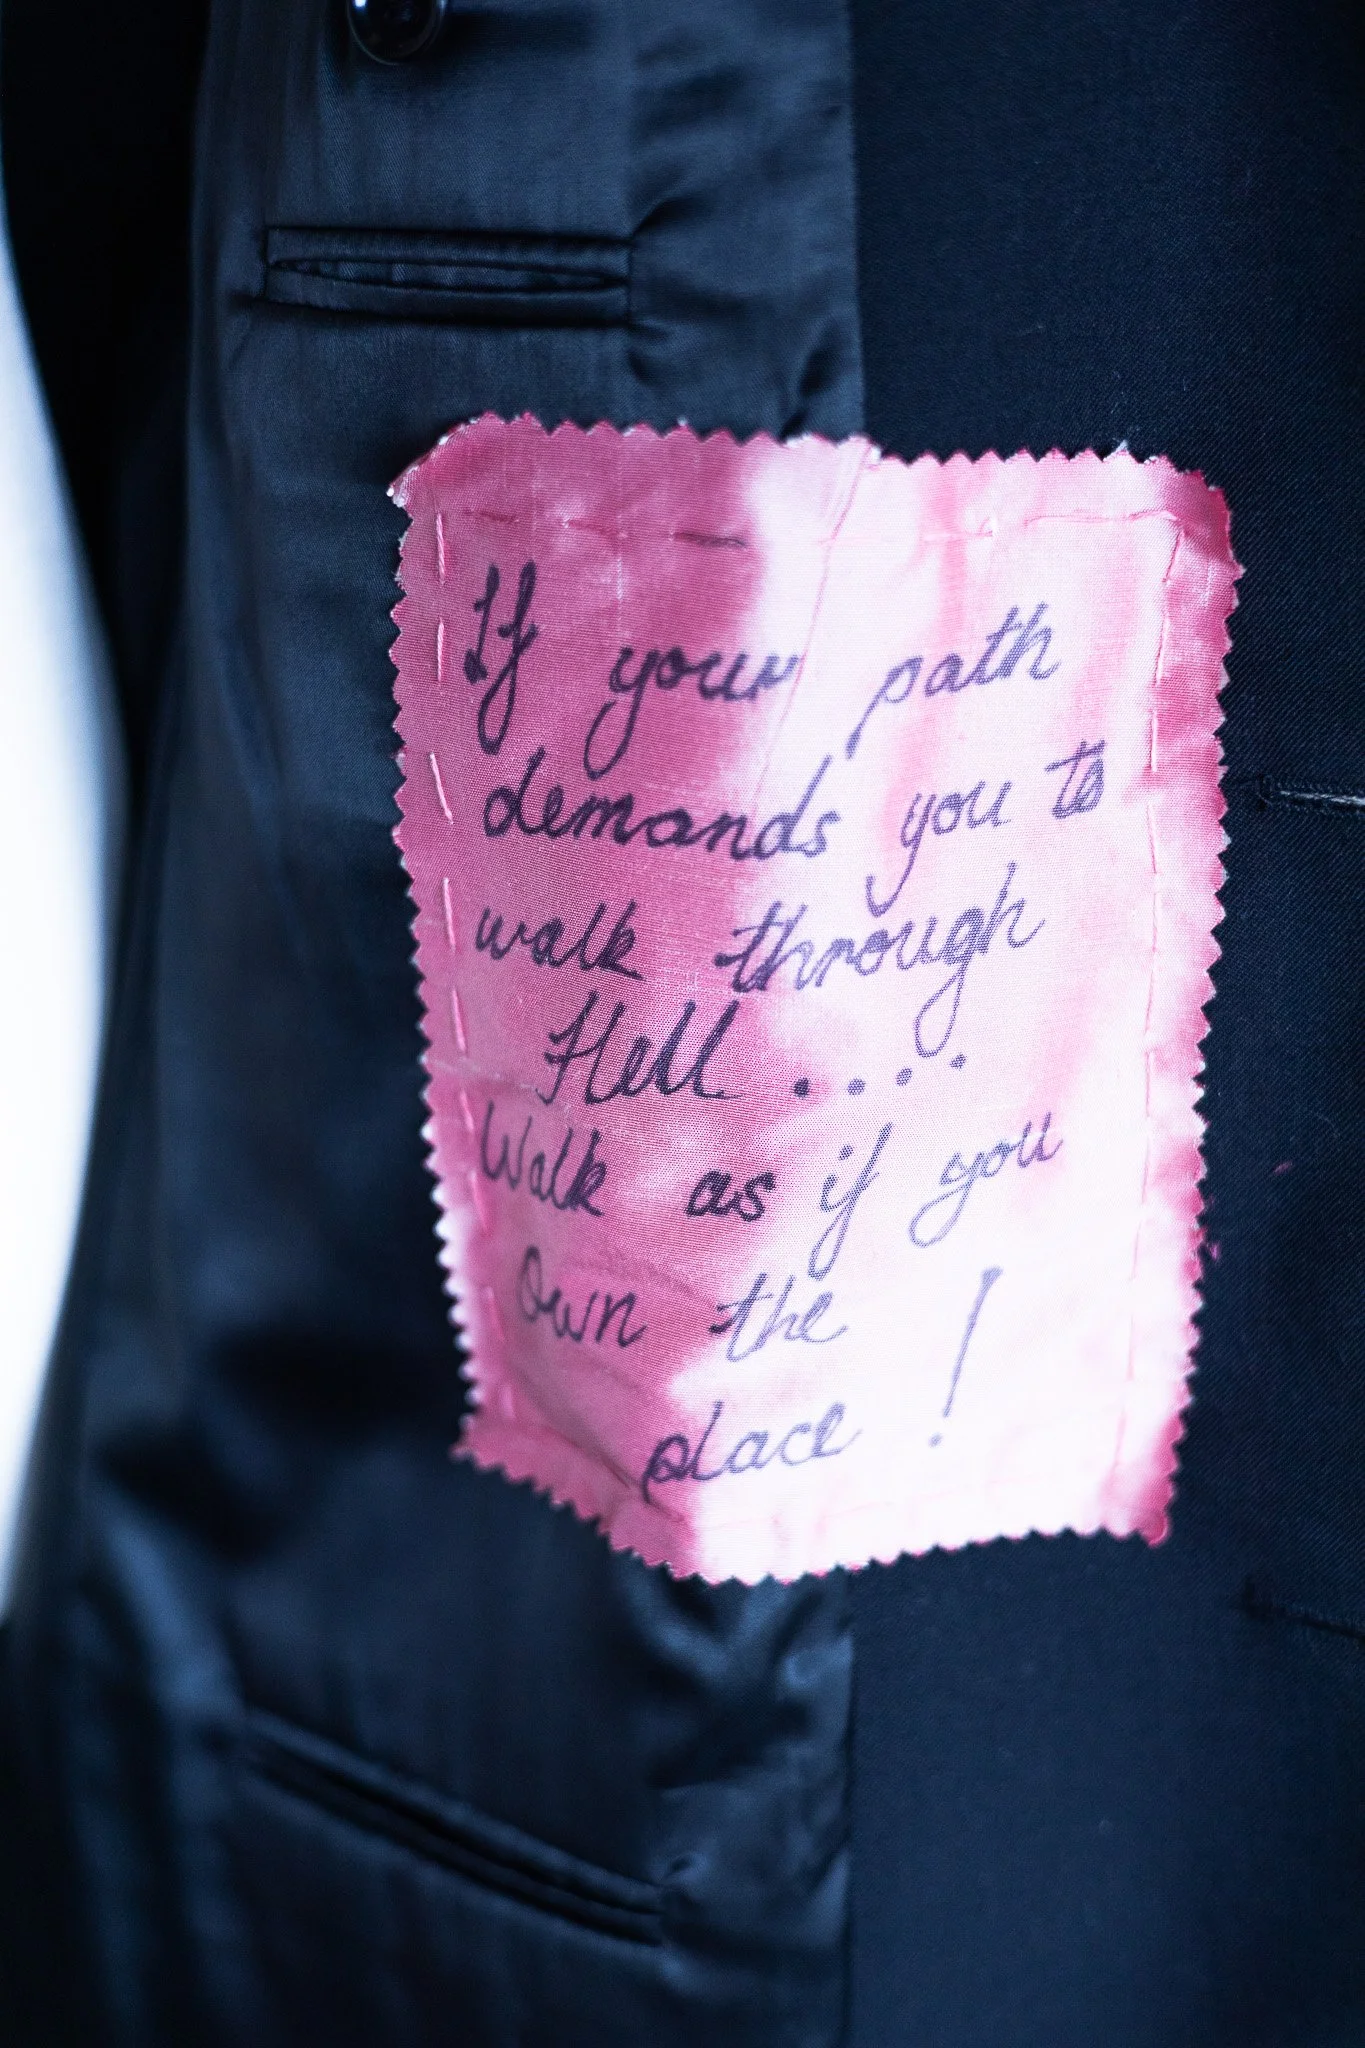 If your path
demands you to
walk through
Hell ....
Walk as if you
Own the
place !